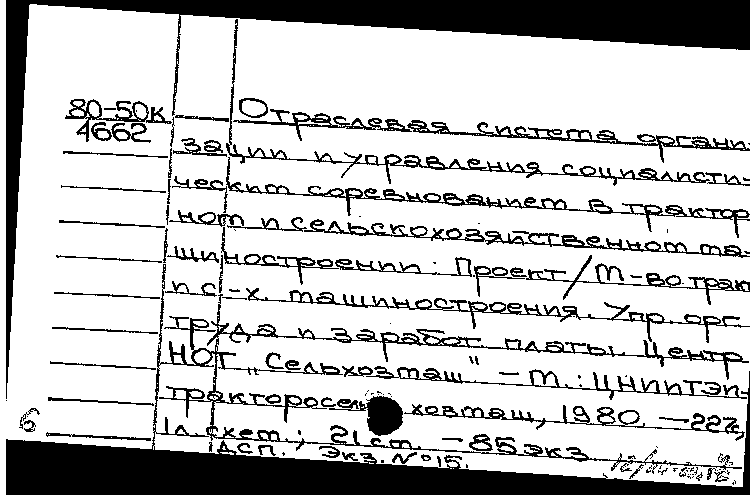 80-50к
4662
Отраслевая система органи-
зации и управления социалисти-
ческим соревнованием в трактор
ном и сельскохозяйственном ма-
шиностроении: Проект/М-во тракт
и с.-х. машиностроения. Упр. орг
труда и заработ. платы. Центр
НОТ "Сельхозмаш" – М.: ЦНИИТЭИ-
тракторосельхозмаш, 1980. – 22с,
1л схем.; 21 см. – 85 экз
ДСП. Экз. № 15.
6